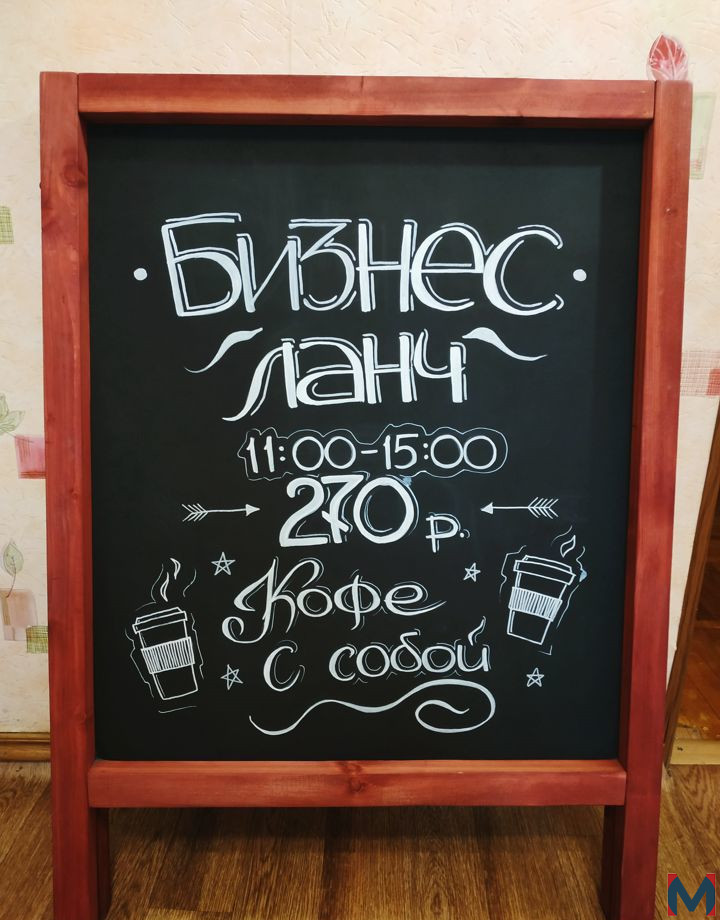 Бизнес
ланч
11:00-15:00
270 р.
Кофе
с собой
М